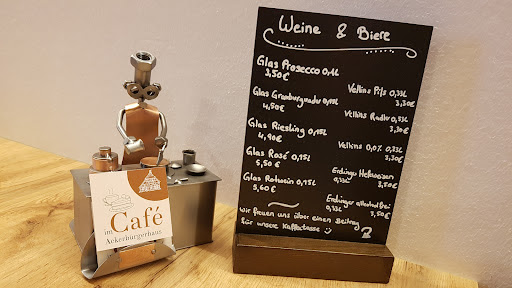 Weine & Biere
Glas Prosecco 0,1L
3,50€
Glas Grauburgunder 0,15L
4,50€
Glas Riesling 0,15L
4,90€
Glas Rosé 0,15L
5,50€
Glas Rotwein 0,15L
5,60€
Veltins Pils 0,33L
3,30€
Veltins Radler 0,33L
3,30€
Veltins 0,0% 0,33L
3,30€
Erdinger Hefeweizen
0,33L 3,50€
Erdinger alkoholfrei
0,33L 3,50€
Wir freuen uns über einen Beitrag
für unsere Kaffeetasse :)
Café
im
Ackerbürgerhaus